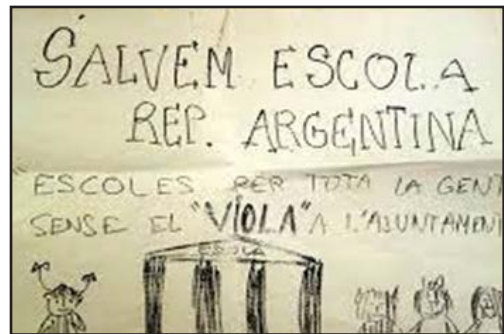 SALVEM ESCOLA
REP. ARGENTINA
"ESCOLES PER TOTA LA GENT
SENSE EL "VIOLA" A L'AJUNTAMENT
ESCOLA